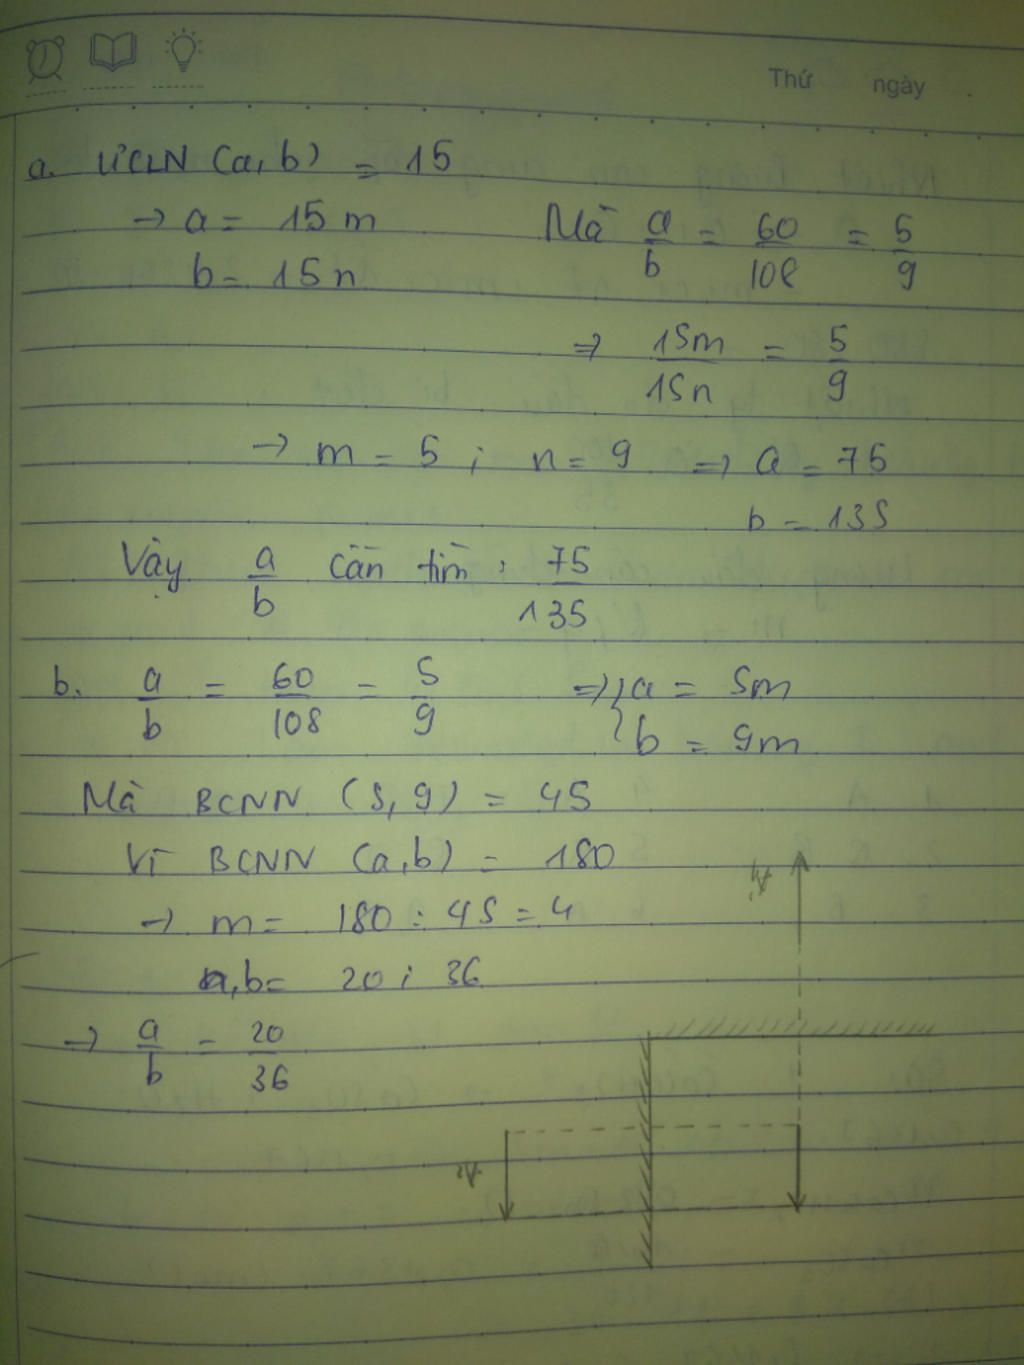 Thứ ngày
a. ƯCLN (a,b) = 15
→ a = 15m Mà a/b = 60/108 = 5/9
b = 15n
⇒ 15m/15n = 5/9
→ m = 5 ; n = 9 ⇒ a = 75
b = 135
Vậy a/b cần tìm : 75/135
b. a/b = 60/108 = 5/9 ⇒ { a = 5m
b = 9m
Mà BCNN (5,9) = 45
Vì BCNN (a,b) = 180
→ m = 180 : 45 = 4
a,b = 20 ; 36
→ a/b = 20/36